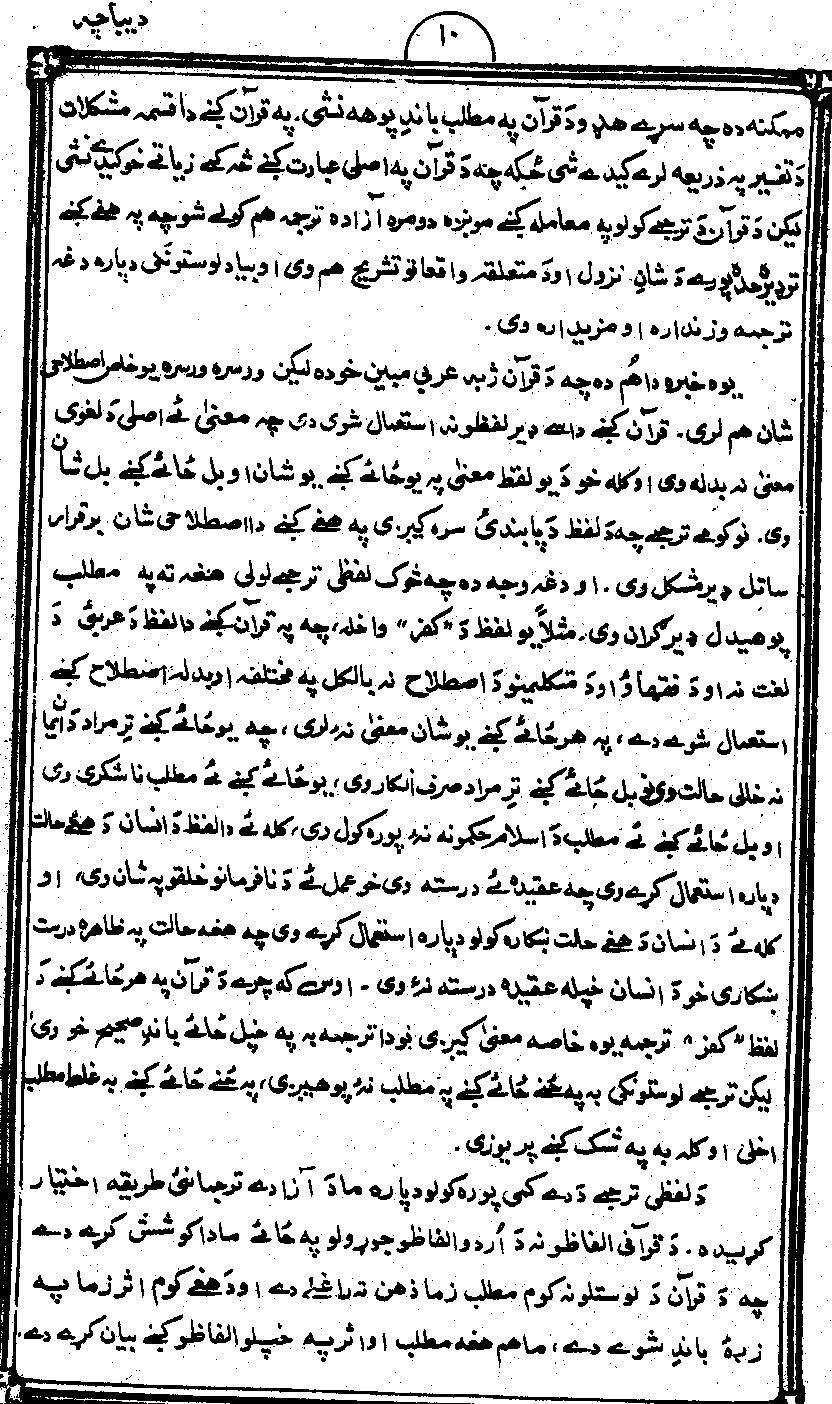 دیباچه
۱۰
ممکنه ده چه سړے هډو د قرآن په مطلب باندِ پوهه نشی. په قرآن کښے دا قسمه مشکلات
دَ تفسیر په ذریعه لرے کیدے شی ځکه چه دَ قرآن په اصلی عبارت کښے څه کمے زیاتے خو کیدے نشی
لیکن دَ قرآن دَ ترجمے کولو په معامله کښے مونږه دومره آزاده ترجمه هم کولے شو چه په هغے کښے
تر ډیره حده پورے دَ شانِ نزول او دَ متعلقه واقعاتو تشریح هم وی او بیا دلوستونکی دپاره دغه
ترجمه وزنداره او مزیداره وی.
یوه خبره دا هُم ده چه دَ قرآن ژبه عربي مبین خو ده لیکن ورسره ورسره یو خاص اصطلاحی
شان هم لری. قرآن کښے داسے ډیر لفظونه استعمال شوی دی چه معنیٰ ئے اصلی دَ لغوی
معنیٰ نه بدله وی او کله خو دَ یو لفظ معنیٰ په یو ځائے کښے یو شان او بل ځائے کښے بل شان
وی. نو کومے ترجمے چه دَ لفظ دَ پابندئ سره کیږی په هغے کښے دا اصطلاحی شان برقرار
ساتل ډیر مشکل وی. او دغه وجه ده چه څوک لفظی ترجمے لولی هغه ته په مطلب
پوهیدل ډیر ګران وی. مثلاً یو لفظ دَ "کفر" واخله، چه په قرآن کښے دا لفظ دَ عربئ دَ
لغت نه او دَ فقهاؤ او دَ متکلیمنو دَ اصطلاح نه بالکل په مختلفه او بدله اصطلاح کښے
استعمال شوے دے، په هر ځائے کښے یو شان معنیٰ نۀ لری، چه یو ځائے کښے ترِ مراد دَ ایمان
نه خالی حالت وی نو بل ځائے کښے ترِ مراد صرف انکار وی، یو ځائے کښے ئے مطلب ناشکری وی
او بل ځائے کښے ئے مطلب دَ اسلام حکمونه نۀ پوره کول وی، کله ئے دا لفظ دَ انسان دَ هغے حالت
دپاره استعمال کړے وی چه عقیده ئے درسته وی خو عمل ئے دَ نافرمانو خلقو په شان وی، او
کله ئے دَ انسان دَ هغے حالت ښکاره کولو دپاره استعمال کړے وی چه هغه حالت په ظاهره درست
ښکاری خو دَ انسان خپله عقیده درسته نۀ وی - اوس که چرے دَ قرآن په هر ځائے کښے دَ
لفظ "کفر" ترجمه یوه خاصه معنیٰ کیږی نو دا ترجمه به په خپل ځائے باندِ صحیح خو وی
لیکن ترجمے لوستونکی به په ځنے ځائے کښے په مطلب نۀ پوهیږی، په ځنے ځائے کښے به غلط مطلب
اخلی او کله به په شک کښے پریوزی.
دَ لفظی ترجمے دَ دے کمی پوره کولو دپاره ما دَ آزادے ترجمانئ طریقه اختیار
کړیده. دَ قرآنی الفاظو نه دَ اُردو الفاظو جوړولو په ځائے ما دا کوشش کړے دے
چه دَ قرآن دَ لوستلو نه کوم مطلب زما ذهن ته راغلے دے او دَ هغے کوم اثر زما په
زړۀ باندِ شوے دے، ما هم هغه مطلب او اثر په خپلو الفاظو کښے بیان کړے دے.